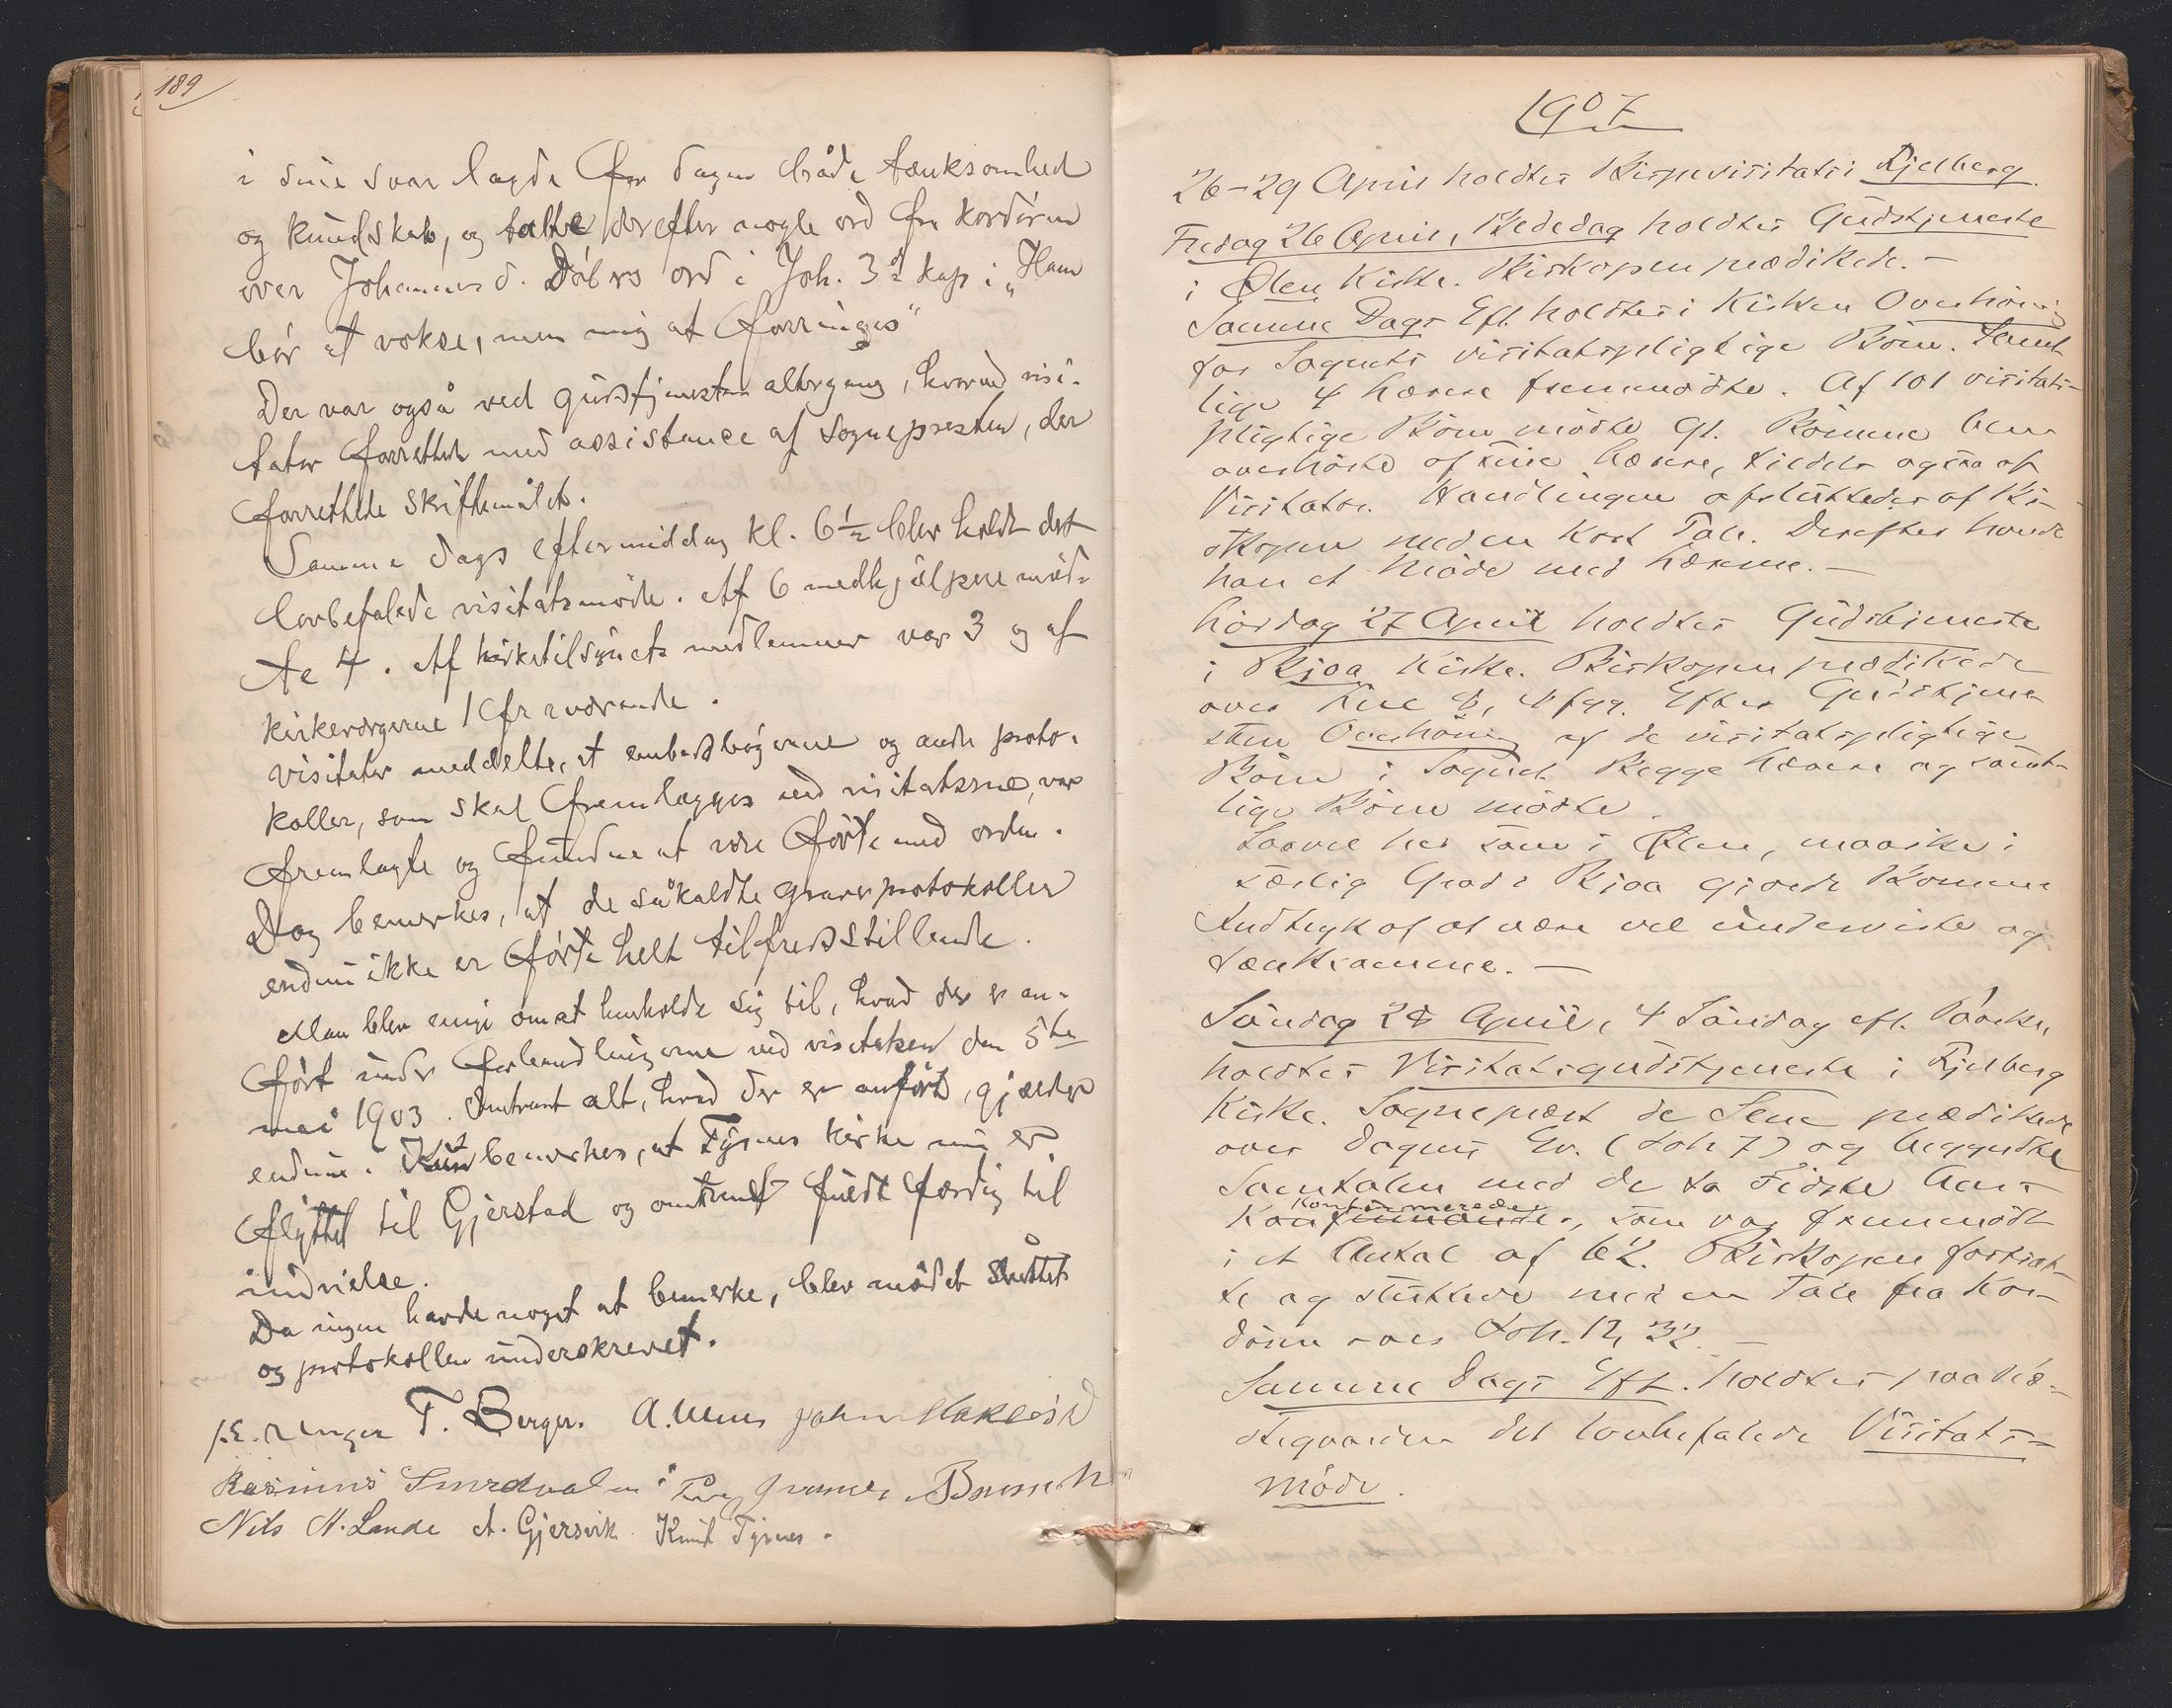 189
i sine svar lagde for dagen både tænksomhed
og kundskab, og talte derefter nogle ord fra kordøren
over Johannes d. Døbers ord i Joh. 3d kap: „Ham
bør at vokse, men mig at forringes"
Der var også ved gudstjenesten altergang, hvorved visi-
tator forrettede med assistance af sognepresten, der
forrettede skriftemålet.
Samme dags eftermiddag kl. 6½ blev holdt det
lovbefalede visitatsmøde. Af 6 medhjælpere mød-
te 4. Af kirketilsynets medlemmer var 3 og af
kirkeværgerne 1 fraværende.
Visitator meddelte, at embedsbøgerne og andre proto-
koller, som skal fremlægges ved visitatsene, var
fremlagte og fundne at være førte med orden.
Dog bemerkes, at de såkaldte graverprotokoller
endnu ikke er førte helt tilfredsstillende.
Man blev enige om at henholde sig til, hvad der er an-
ført under forhandlingerne ved visitatsen den 5te
mai 1903. Omtrent alt, hvad der er anført, gjælder
endnu. Det bemerkes, at Tysnes kirke nu er
flyttet til Gjerstad og omtrent fuldt færdig til
indvielse.
Da ingen havde noget at bemerke, blev mødet sluttet
og protokollen underskrevet.
J.E. Unger T. Berger. A. Unes Johan Hakløsd
Rasmus
Nils N. Lande A. Gjersvik. Knut Tysnes.
1907
26-29 April holdtes Bispevisitats i Fjelberg.
Fredag 26 April, Bededag holdtes Gudstjeneste
i Ølen Kirke. Biskopen prædikede. —
Samme Dags Eft. holdtes i Kirken Overhøring
for Sognets visitatspligtige Børn. Samt-
lige 4 Lærere fremmødte. Af 101 visitats-
pligtige Børn mødte 91. Børnene blev
overhørte af sine Lærere, tildels ogsaa af
Visitator. Handlingen afsluttedes af Bi-
skopen med en kort Tale. Derefter havde
han et Møde med Lærerne. —
Lørdag 27 April holdtes Gudstjeneste
i Bjoa Kirke. Biskopen prædikede
over Luc 8, 4 fgg. Efter Gudstjene-
sten Overhøring af de visitatspligtige
Børn i Sognet. Begge Lærere og samt-
lige Børn mødte.
Saavel her som i Ølen, maaske i
særlig Grad i Bjoa gjorde Børnene
Indtryk af at være vel underviste og
tænksomme. —
Søndag 28 April, 4 Søndag eft. Paaske,
holdtes Visitatsgudstjeneste i Fjelberg
Kirke. Sogneprest de Seue prædikede
over Dagens Ev. (Joh 7) og begyndte
Samtalen med de to sidste Aars
Konfirmerede
Konfirmander, som var fremmødt
i et Antal af 62. Biskopen fortsat-
te og sluttede med en Tale fra Kor-
døren over Joh. 12, 32. —
Samme Dags Eft. holdtes paa Præ-
stegaarden det lovbefalede Visitats-
møde.